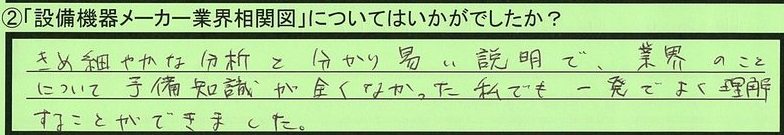 ②「設備機器メーカー業界相関図」についてはいかがでしたか？
きめ細やかな分析と分かり易い説明で、業界のこと
について予備知識が全くなかった私でも一発でよく理解
することができました。